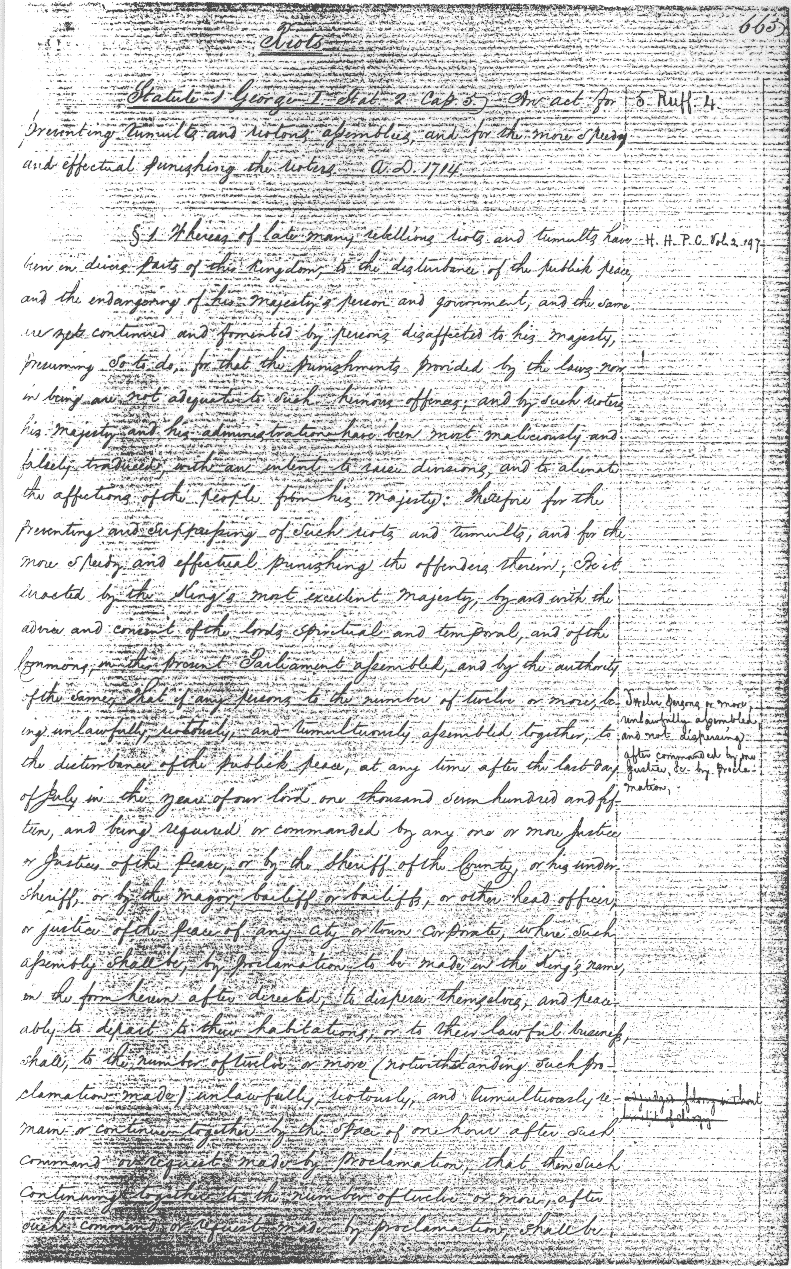 663
Riots
Statute 1 George I Stat. 2 Cap. 5. An act for
preventing tumults and riotous assemblies, and for the more speedy
and effectual punishing the rioters. A.D. 1714.
5 Ruff. 4.
§ 1 Whereas of late many rebellious riots and tumults have
been in divers parts of this kingdom, to the disturbance of the publick peace,
and the endangering of his majesty's person and government, and the same
are yet continued and fomented by persons disaffected to his majesty,
presuming so to do, for that the punishments provided by the laws now
in being are not adequate to such heinous offences; and by such rioters
his majesty and his administration have been most maliciously and
falsely traduced, with an intent to raise divisions, and to alienate
the affections of the people from his majesty: Therefore for the
preventing and suppressing of such riots and tumults, and for the
more speedy and effectual punishing the offenders therein; Be it
enacted by the King's most excellent majesty, by and with the
advice and consent of the lords spiritual and temporal, and of the
commons, in this present Parliament assembled, and by the authority
of the same, that if any persons to the number of twelve or more, be-
ing unlawfully, riotously, and tumultuously assembled together, to
the disturbance of the publick peace, at any time after the last day
of July in the year of our lord one thousand seven hundred and fif-
teen, and being required or commanded by any one or more Justice
or Justices of the Peace, or by the Sheriff of the County, or his under-
sheriff, or by the mayor, bailiff or bailiffs, or other head officer,
or justice of the peace of any city or town corporate, where such
assembly shall be, by proclamation to be made in the King's name,
in the form herein after directed, to disperse themselves, and peace-
ably to depart to their habitations, or to their lawful business,
shall, to the number of twelve or more (notwithstanding such pro-
clamation made) unlawfully, riotously, and tumultuously re-
main or continue together by the space of one hour after such
command or request made by proclamation, that then such
continuing together to the number of twelve or more, after
such command or request made by proclamation, shall be
H. H. P. C. Vol. 2. 197
Twelve persons or more,
unlawfully assembled,
and not dispersing
after commanded by one
Justice, &c. by procla-
mation,
adjudged felony without
benefit of clergy